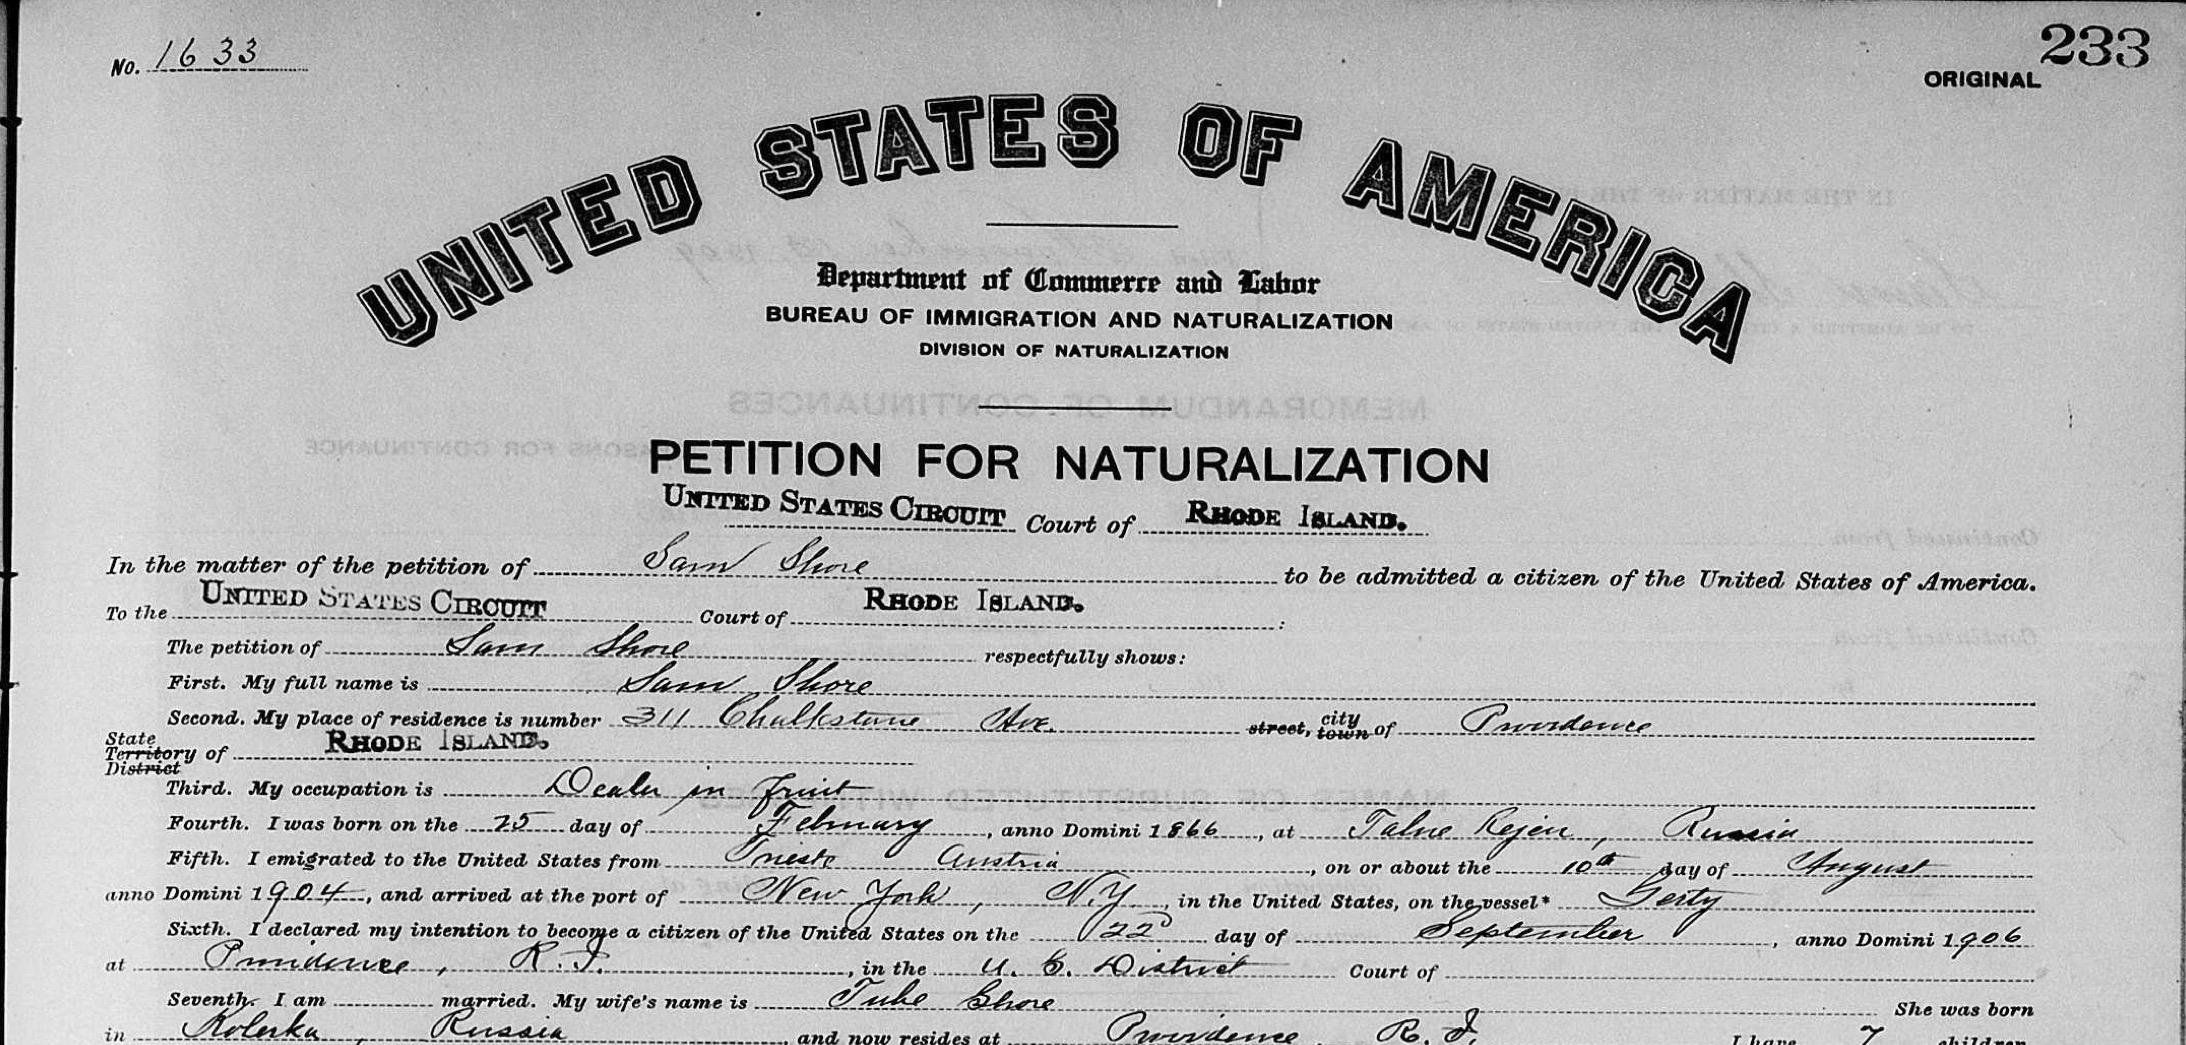 No. 1633
233
ORIGINAL
UNITED STATES OF AMERICA
Department of Commerce and Labor
BUREAU OF IMMIGRATION AND NATURALIZATION
DIVISION OF NATURALIZATION
MEMORANDUM OF CONTINUANCES
PETITION FOR NATURALIZATION
UNITED STATES CIRCUIT Court of RHODE ISLAND.
In the matter of the petition of Sam Shore to be admitted a citizen of the United States of America.
To the UNITED STATES CIRCUIT Court of RHODE ISLAND. :
The petition of Sam Shore respectfully shows:
First. My full name is Sam Shore
Second. My place of residence is number 311 Chalkstone Ave. street, city town of Providence
State Territory District of RHODE ISLAND.
Third. My occupation is Dealer in fruit
Fourth. I was born on the 25 day of February, anno Domini 1866, at Russia
Fifth. I emigrated to the United States from Trieste Austria, on or about the 10th day of August
anno Domini 1904, and arrived at the port of New York, N.Y., in the United States, on the vessel* Gerty
Sixth. I declared my intention to become a citizen of the United States on the 22d day of September, anno Domini 1906
at Providence, R.I., in the U. S. District Court of
Seventh. I am married. My wife's name is Tube Shore She was born
in Russia and now resides at Providence, R. I. I have 7 children